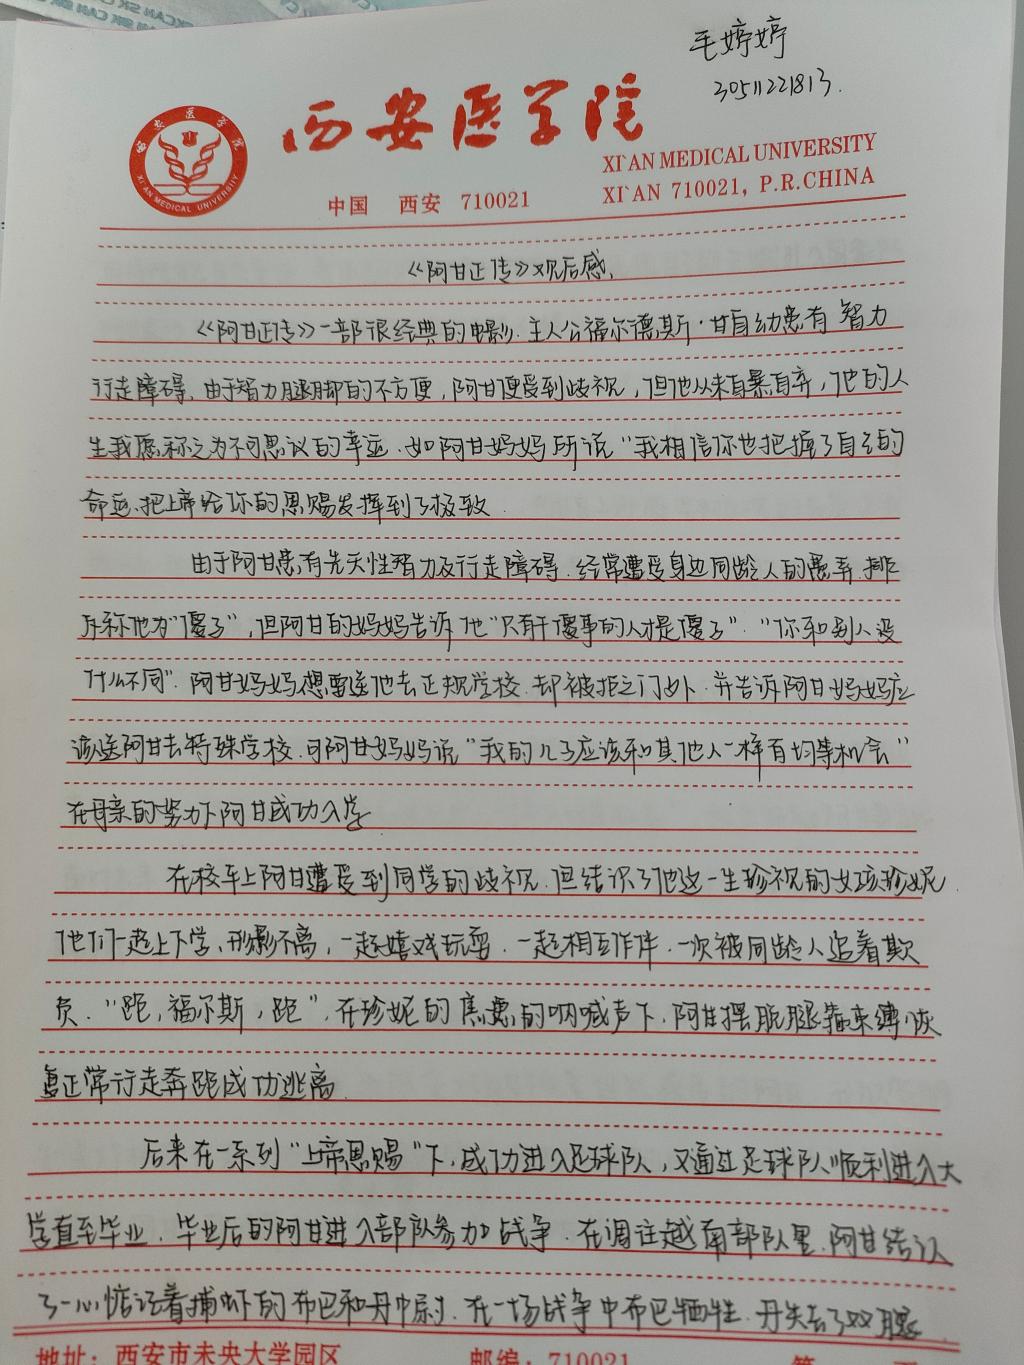 毛婷婷
30511221813.
西安医学院
XI'AN MEDICAL UNIVERSITY
XI'AN 710021, P.R.CHINA
中国 西安 710021
《阿甘正传》观后感.
《阿甘正传》一部很经典的电影.主人公福尔德斯·甘自幼患有智力
行走障碍,由于智力腿脚的不方便,阿甘便受到歧视,但他从未自暴自弃,他的人
生我愿称之为不可思议的幸运.如阿甘妈妈所说"我相信你也把握了自己的
命运、把上帝给你的恩赐发挥到了极致.
由于阿甘患有先天性智力及行走障碍.经常遭受身边同龄人的愚弄.排
斥称他为"傻子",但阿甘的妈妈告诉他"只有干傻事的人才是傻子"."你和别人没
什么不同".阿甘妈妈想要送他去正规学校.却被拒之门外.并告诉阿甘妈妈应
该送阿甘去特殊学校.可阿甘妈妈说"我的儿子应该和其他人一样有均等机会"
在母亲的努力下阿甘成功入学
在校车上阿甘遭受到同学的歧视.但结识了他这一生珍视的女孩珍妮.
他们一起上下学、形影不离,一起嬉戏玩耍.一起相互作伴.一次被同龄人追着欺
负."跑,福尔斯,跑".在珍妮的焦虑的呐喊声下,阿甘摆脱腿箍束缚恢
复正常行走奔跑成功逃离.
后来在一系列"上帝恩赐"下,成功进入足球队,又通过足球队顺利进入大
学直至毕业.毕业后的阿甘进入部队参加战争.在调往越南部队里.阿甘结认
了一心惦记着捕虾的布巴和丹中尉.在一场战争中布巴牺牲.丹失去了双腿
地址:西安市未央大学园区
邮编:710021